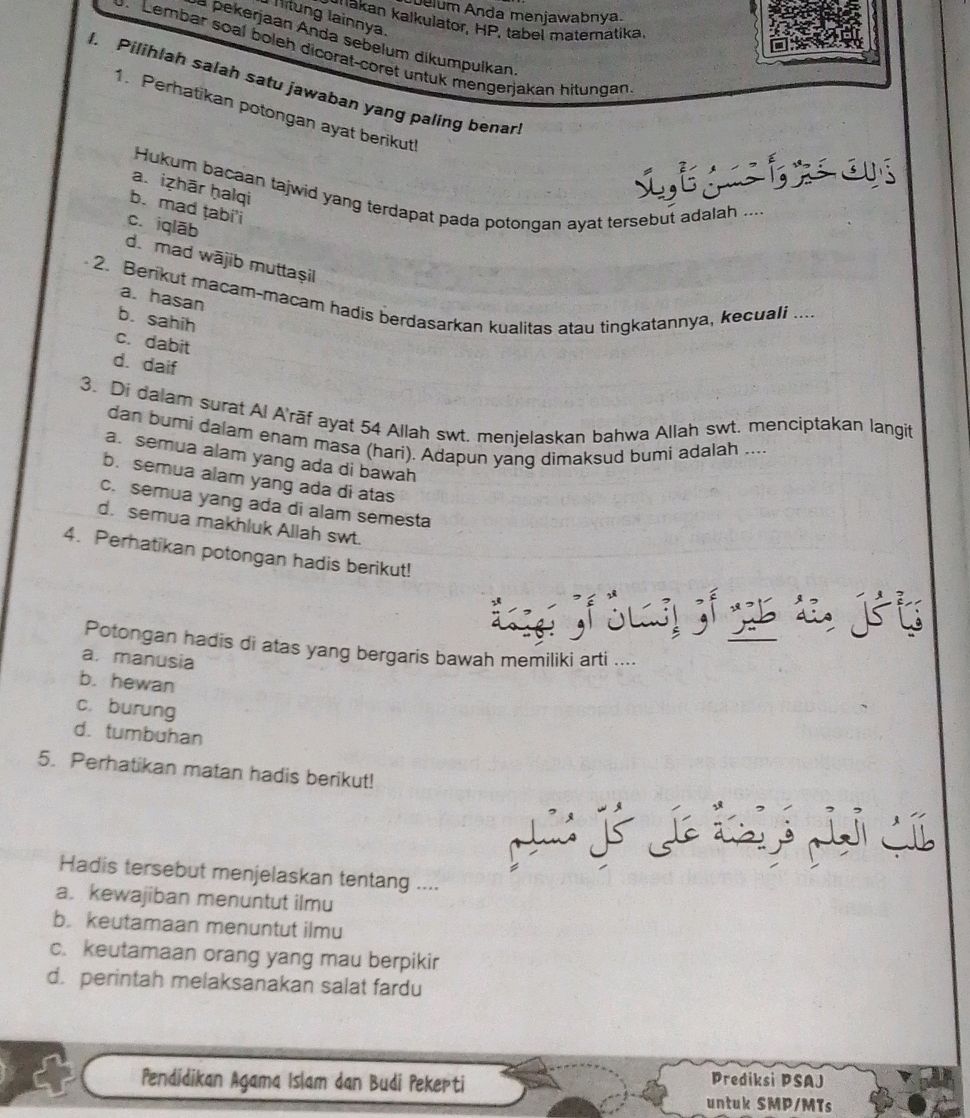 belum Anda menjawabnya.
kalkulator, HP, tabel matematika,
hitung lainnya.
pekerjaan Anda sebelum dikumpulkan.
Lembar soal boleh dicorat-coret untuk mengerjakan hitungan.
I. Pilihlah salah satu jawaban yang paling benar!
1. Perhatikan potongan ayat berikut!
ذَٰلِكَ خَيْرٌ وَأَحْسَنُ تَأْوِيلًا
Hukum bacaan tajwid yang terdapat pada potongan ayat tersebut adalah ....
a. iẓhār ḥalqi
b. mad ṭabi'i
c. iqlāb
d. mad wājib muttaṣil
2. Berikut macam-macam hadis berdasarkan kualitas atau tingkatannya, kecuali ....
a. hasan
b. sahih
c. dabit
d. daif
3. Di dalam surat Al A'rāf ayat 54 Allah swt. menjelaskan bahwa Allah swt. menciptakan langit
dan bumi dalam enam masa (hari). Adapun yang dimaksud bumi adalah ....
a. semua alam yang ada di bawah
b. semua alam yang ada di atas
c. semua yang ada di alam semesta
d. semua makhluk Allah swt.
4. Perhatikan potongan hadis berikut!
فَيَأْكُلُ مِنْهُ طَيْرٌ أَوْ إِنْسَانٌ أَوْ بَهِيْمَةٌ
Potongan hadis di atas yang bergaris bawah memiliki arti ....
a. manusia
b. hewan
c. burung
d. tumbuhan
5. Perhatikan matan hadis berikut!
طَلَبُ الْعِلْمِ فَرِيْضَةٌ عَلَى كُلِّ مُسْلِمٍ
Hadis tersebut menjelaskan tentang ....
a. kewajiban menuntut ilmu
b. keutamaan menuntut ilmu
c. keutamaan orang yang mau berpikir
d. perintah melaksanakan salat fardu
Pendidikan Agama Islam dan Budi Pekerti
Prediksi PSAJ
untuk SMP/MTs